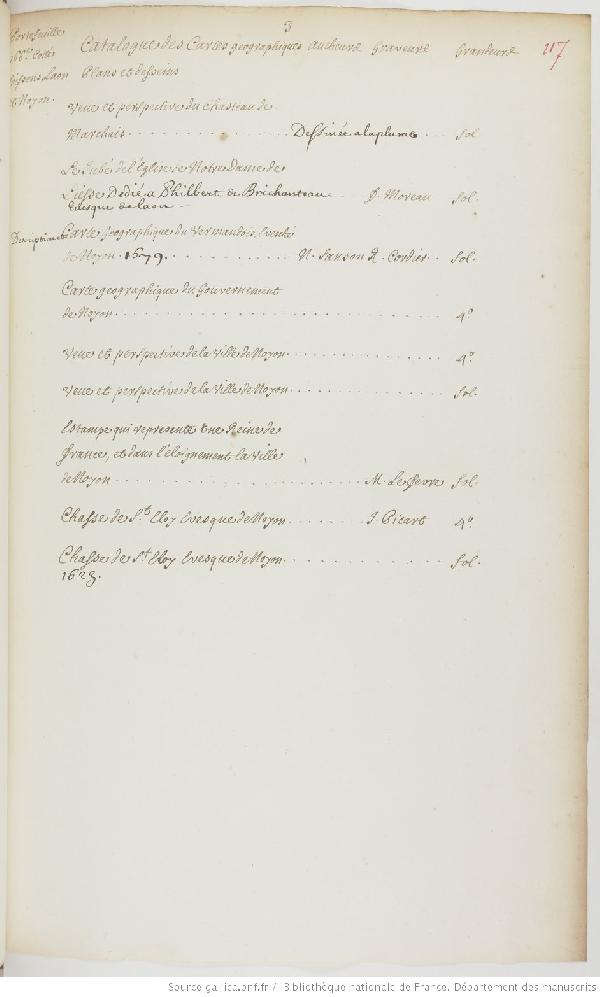 3
Portefeuille
Catalogue des Cartes geographiques autheure graveure grandeure 217
Plans et desseins
Soissons Laon
et Noyon.
Veue et perspective du chasteau de
Marchais . . . . . . . . . . . . . Dessinée a la plume . . fol.
Le Jubé de l'Eglise de Notre Dame de
Liesse Dedié a Philbert de Brichanteau D. Moreau fol.
Evesque de Laon
Carte geographique du Vermandois, Evesché
de Noyon. 1679. . . . . . . . . . N. Sanson R. Cordier . . fol.
Carte geographique du Gouvernement
de Noyon . . . . . . . . . . . . . . . . 4.º
Veue et perspective de la Ville de Noyon . . . . . . . . . 4.º
Veue et perspective de la Ville de Noyon . . . . . . . . . fol.
Estampe qui represente une Reine de
france, et dans l'éloignement la Ville
de Noyon . . . . . . . . . . . . . . . . M. Le Fevre fol.
Chasse de S.t Eloy Evesque de Noyon . . . . . . J. Picart 4.º
Chasse de S.t Eloy Evesque de Noyon . . . . . . . . . fol.
1628.
Source gallica.bnf.fr / Bibliothèque nationale de France. Département des manuscrits